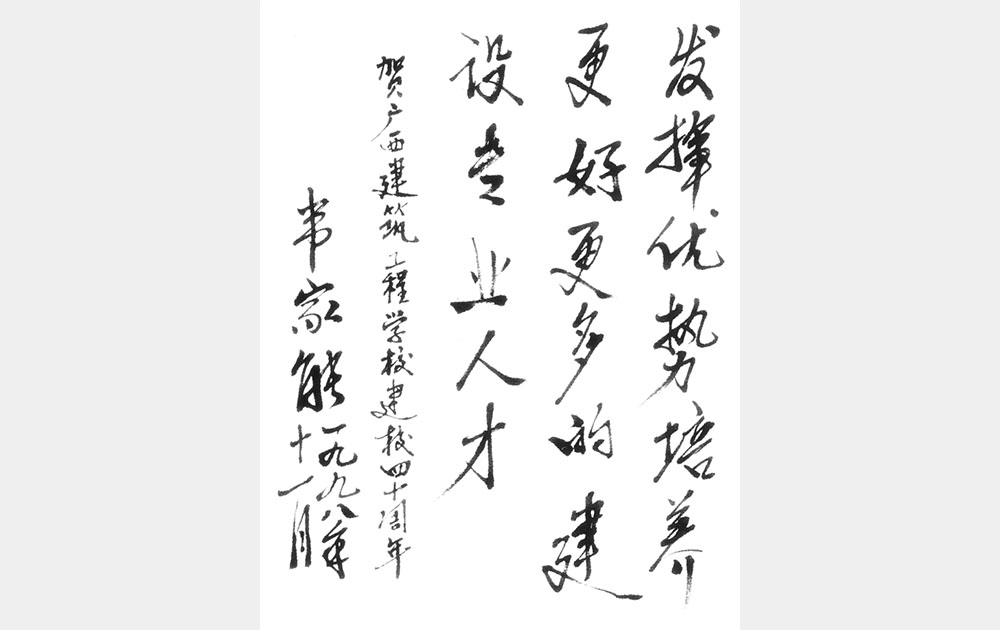 发挥优势培养
更好更多的建
设专业人才
贺广西建筑工程学校建校四十周年
韦家能
一九九八年
十一月